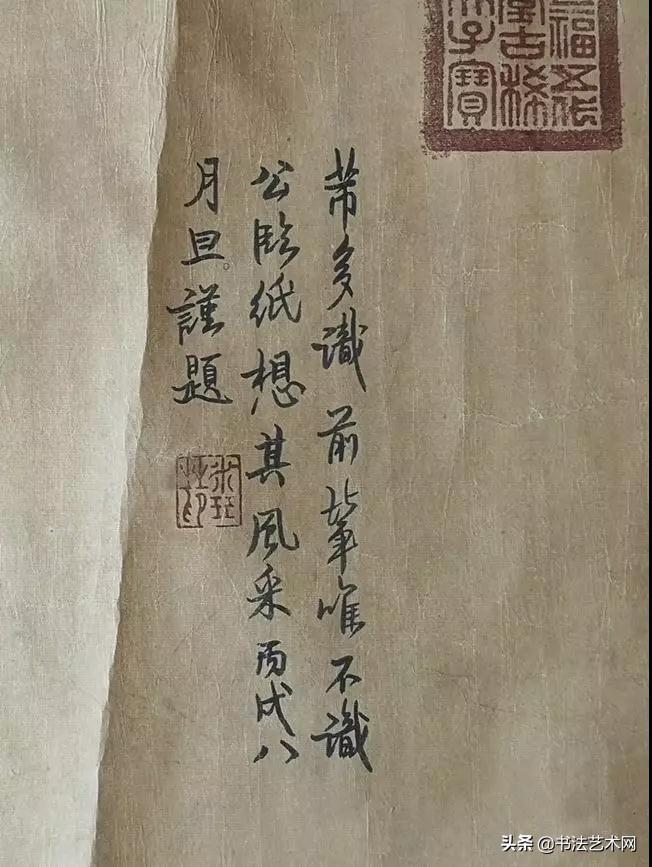 五福五代
堂古稀
天子寶
芾多識前輩唯不識
公臨紙想其風采丙戌八
月旦謹題
头条 @书法艺术网